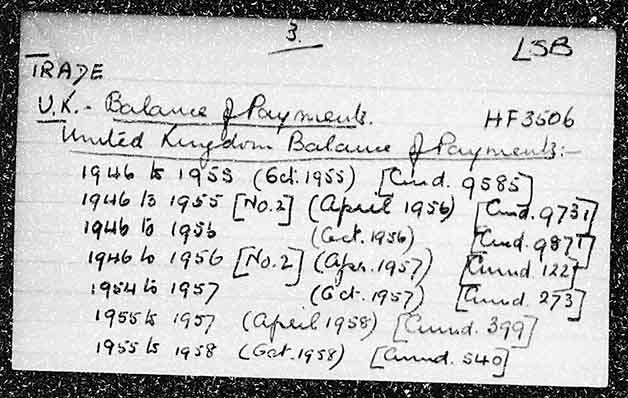 3.
LSB
TRADE
U.K. - Balance of Payments. HF3506
United Kingdom Balance of Payments:-
1946 to 1955 (Oct. 1955) [Cmd. 9585]
1946 to 1955 [No.2] (April 1956) [Cmd. 9731]
1946 to 1956 (Oct. 1956) [Cmd. 9871]
1946 to 1956 [No.2] (Apr. 1957) [Cmnd. 122]
1954 to 1957 (Oct. 1957) [Cmnd. 273]
1955 to 1957 (April 1958) [Cmnd. 399]
1955 to 1958 (Oct. 1958) [Cmnd. 540]